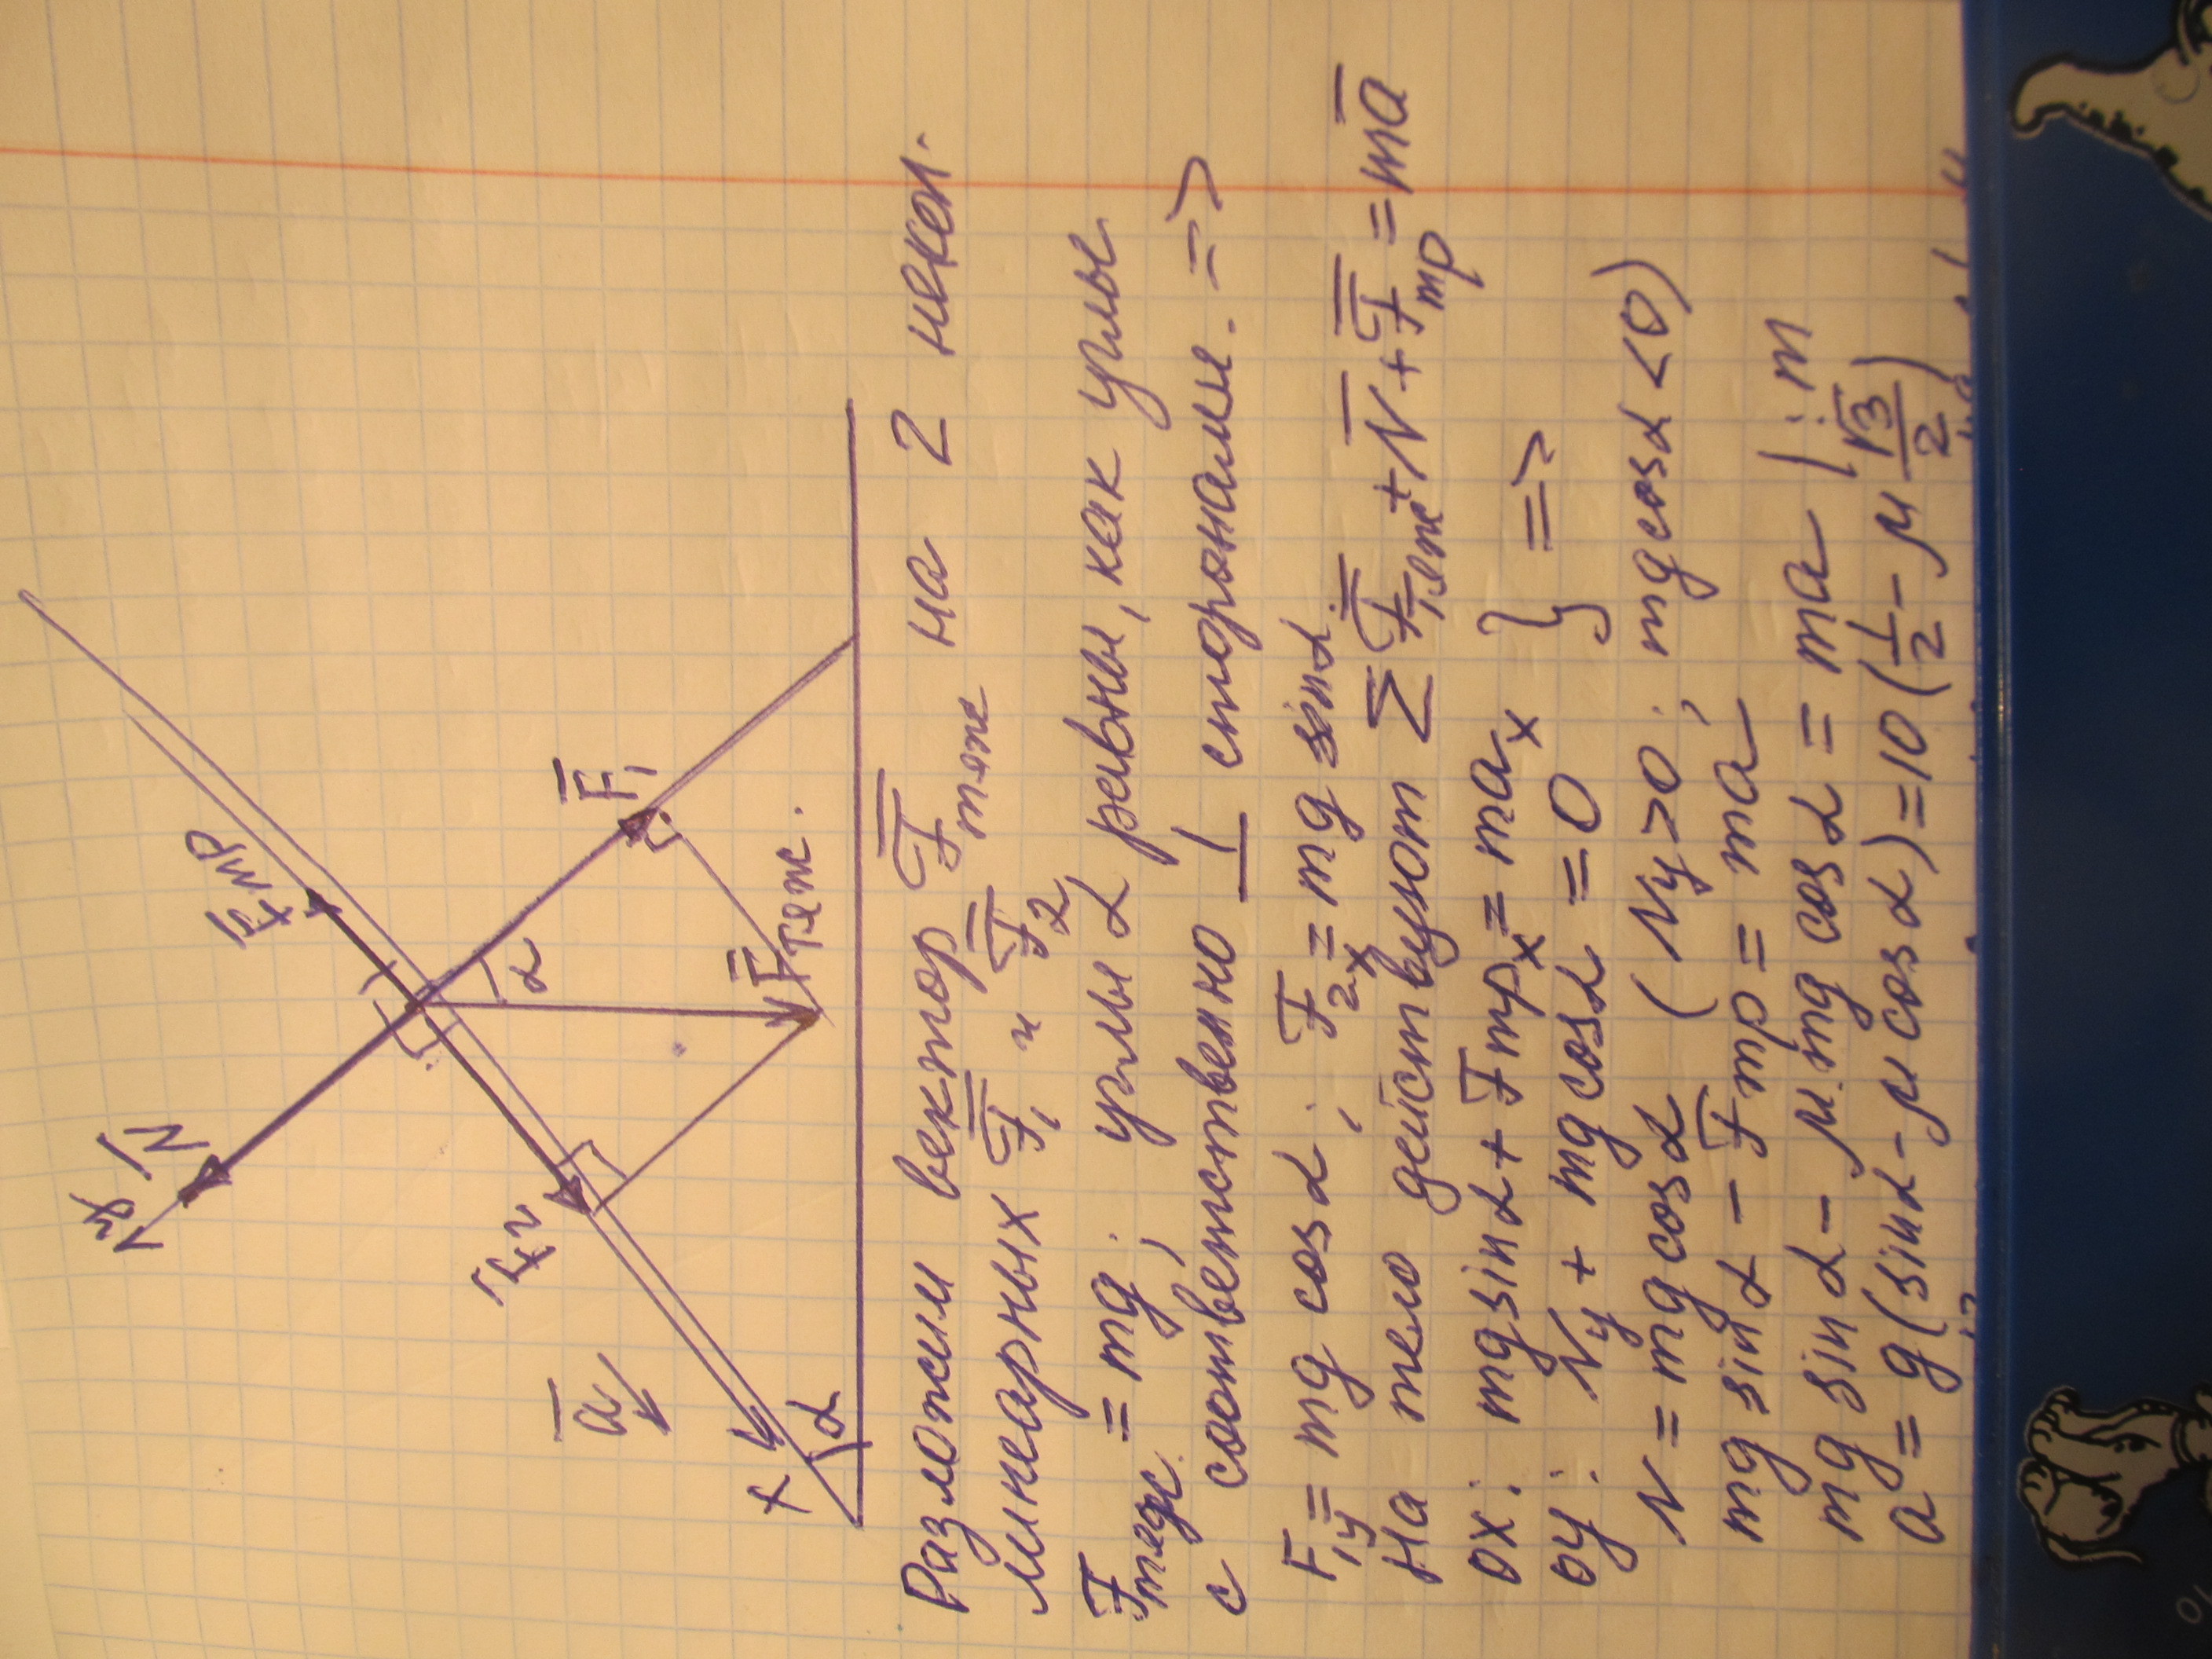 y
N̄
F̄тр
F̄2
ā
F̄1
α
F̄тяж.
x
α
Разложим вектор F̄тяж на 2 некол.
линеарных F̄1 и F̄2
Fтяж. = mg; углы α равны, как углы
с соответственно ⊥ сторонами. =>
F1y = mg cos α; F2x = mg sin α
На тело действуют Σ F̄тяж + N̄ + F̄тр = mā
ox: mg sin α + Fтрx = max } =>
oy: Ny + mg cos α = 0
N = mg cos α ( Ny > 0; mg cos α < 0)
mg sin α - Fтр = ma
mg sin α - μ·mg cos α = ma | : m
a = g(sin α - μ cos α) = 10(1/2 - μ √3/2)